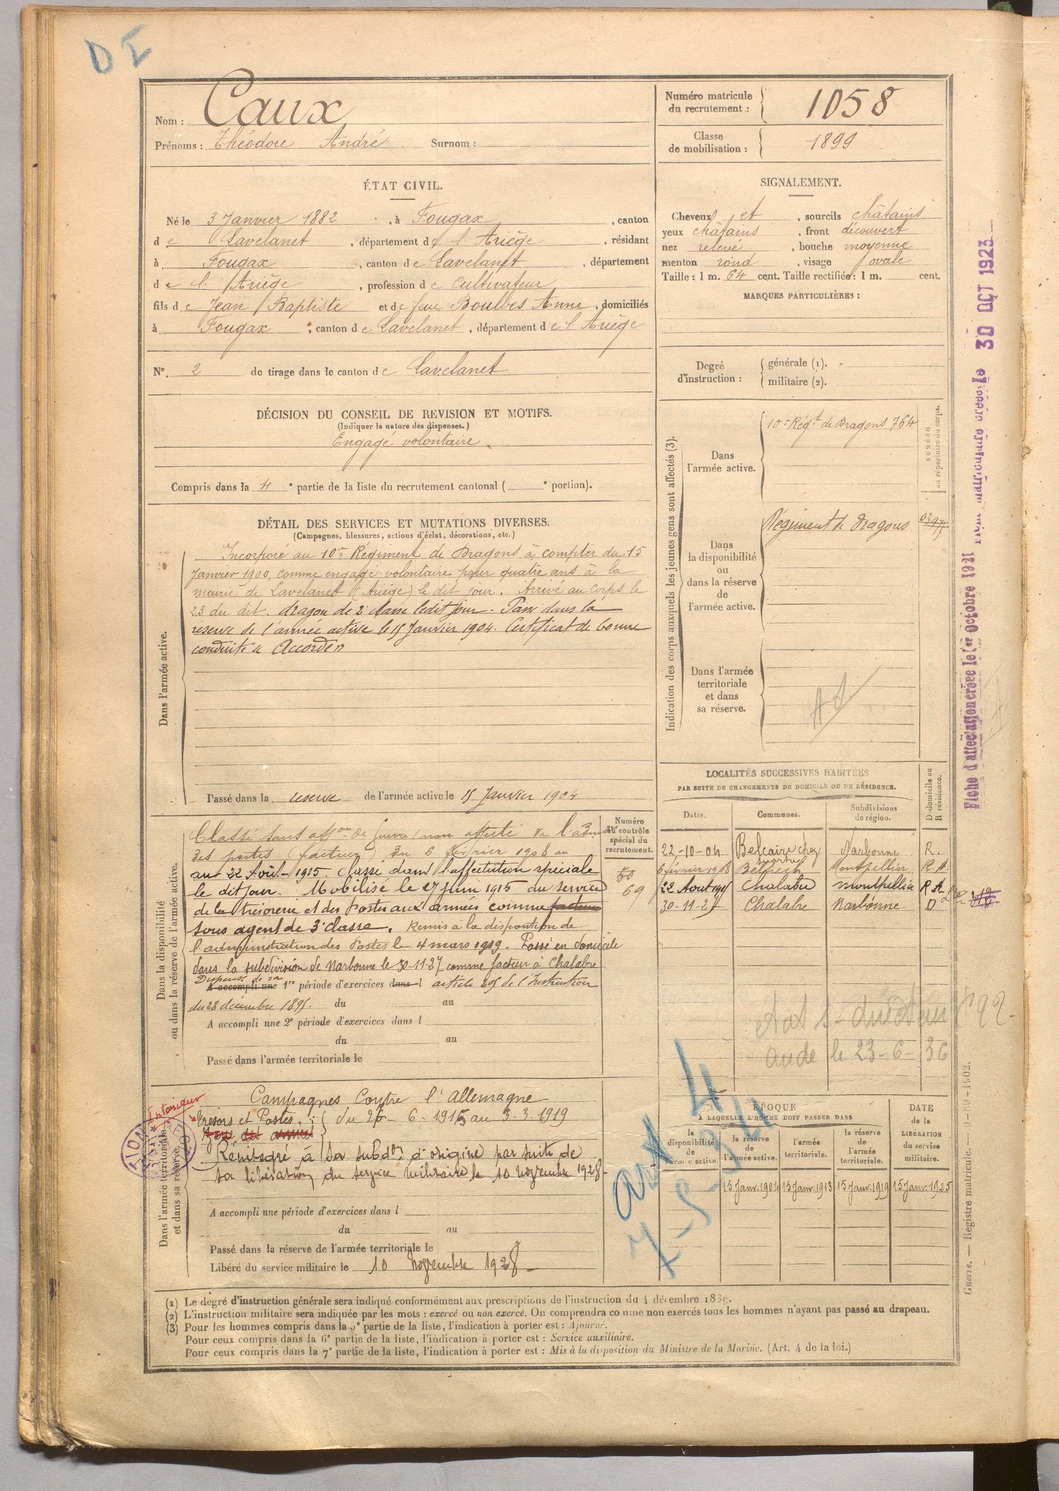 D I
Nom : Caux
Prénoms : Théodore André Surnom :
Numéro matricule du recrutement : 1058
Classe de mobilisation : 1899
ÉTAT CIVIL.
Né le 3 Janvier 1882, à Fougax, canton
de Lavelanet, département de l'Ariège, résidant
à Fougax, canton de Lavelanet, département
de l'Ariège, profession de Cultivateur
fils de Jean Baptiste et de feue Boulbes Anne, domiciliés
à Fougax, canton de Lavelanet, département de l'Ariège
N° 2 de tirage dans le canton de Lavelanet
SIGNALEMENT.
Cheveux et, sourcils châtains
yeux châtains, front découvert
nez relevé, bouche moyenne
menton rond, visage ovale
Taille : 1 m. 64 cent. Taille rectifiée : 1 m. cent.
MARQUES PARTICULIÈRES :
Degré d'instruction : générale (1).
militaire (2).
DÉCISION DU CONSEIL DE REVISION ET MOTIFS.
(Indiquer la nature des dispenses.)
Engagé volontaire.
Compris dans la 4e partie de la liste du recrutement cantonal ( e portion).
DÉTAIL DES SERVICES ET MUTATIONS DIVERSES.
(Campagnes, blessures, actions d'éclat, décorations, etc.)
Dans l'armée active.
Incorporé au 10e Régiment de Dragons à compter du 15
Janvier 1900, comme engagé volontaire pour quatre ans à la
mairie de Lavelanet (Ariège) le dit jour. Arrivé au corps le
23 du dit. dragon de 2e classe ledit jour. Passé dans la
réserve de l'armée active le 15 Janvier 1904. Certificat de bonne
conduite "Accordé"
Passé dans la réserve de l'armée active le 15 Janvier 1904
Indication des corps auxquels les jeunes gens sont affectés (3).
NUMÉRO au répertoire du corps.
Dans l'armée active.
10e Régt de Dragons 764
Dans la disponibilité ou dans la réserve de l'armée active.
Régiment de Dragons
Dans l'armée territoriale et dans sa réserve.
LOCALITÉS SUCCESSIVES HABITÉES
PAR SUITE DE CHANGEMENTS DE DOMICILE OU DE RÉSIDENCE.
Dates. Communes. Subdivisions de région. D domicile ou R résidence.
22-10-04 Belcaire chez Narbonne R.
6 février 1908 Montpellier R.
22 Aout Chalabre Montpellier R
30-11-27 Chalabre Narbonne D
Dans la disponibilité ou dans la réserve de l'armée active.
Numéro au contrôle spécial du recrutement.
69
Classé sans aff.on (non affecté) de l'adm
des postes (facteur) du 6 février 1908 au
au 22 Août 1915. Classé dans l'affectation spéciale
le dit jour. Mobilisé le 27 Juin 1915 du service
de la trésorerie et des Postes aux armées comme facteur
sous agent de 3e classe. Remis à la disposition de
l'administration des Postes le 4 mars 1919. Passé en domicile
dans la subdivision de Narbonne le 30-11-27 comme facteur à Chalabre
Dispensé de sa
A accompli une 1re période d'exercices dans l article de l'Instruction
du 28 décembre 1895. du au
A accompli une 2e période d'exercices dans l
du au
Passé dans l'armée territoriale le
aude le 23-6-36
Dans l'armée territoriale et dans sa réserve.
Campagnes Contre l'Allemagne
Intérieur
Trésors et Postes. du 26-6-1915 au 3-3-1919
aux armées
Réintégré à sa subd.on d'origine par suite de
sa libération du service militaire le 10 novembre 1928
A accompli une période d'exercices dans l
du au
Passé dans la réserve de l'armée territoriale le
Libéré du service militaire le 10 Novembre 1928
ÉPOQUE À LAQUELLE L'HOMME DOIT PASSER DANS
la disponibilité de l'armée active. la réserve de l'armée active. l'armée territoriale. la réserve de l'armée territoriale.
DATE de la LIBÉRATION du service militaire.
15 Janv. 1904 15 Janv. 1913 15 Janv. 1919 15 Janv. 1925
(1) Le degré d'instruction générale sera indiqué conformément aux prescriptions de l'instruction du 4 décembre 1889.
(2) L'instruction militaire sera indiquée par les mots : exercé ou non exercé. On comprendra comme non exercés tous les hommes n'ayant pas passé au drapeau.
(3) Pour les hommes compris dans la 5e partie de la liste, l'indication à porter est : Ajourné.
Pour ceux compris dans la 6e partie de la liste, l'indication à porter est : Service auxiliaire.
Pour ceux compris dans la 7e partie de la liste, l'indication à porter est : Mis à la disposition du Ministre de la Marine. (Art. 4 de la loi.)
Fiche d'affectation créée le 1er Octobre 1921
Fiche matriculaire créée le 30 OCT 1923
Guerre. — Registre matricule.